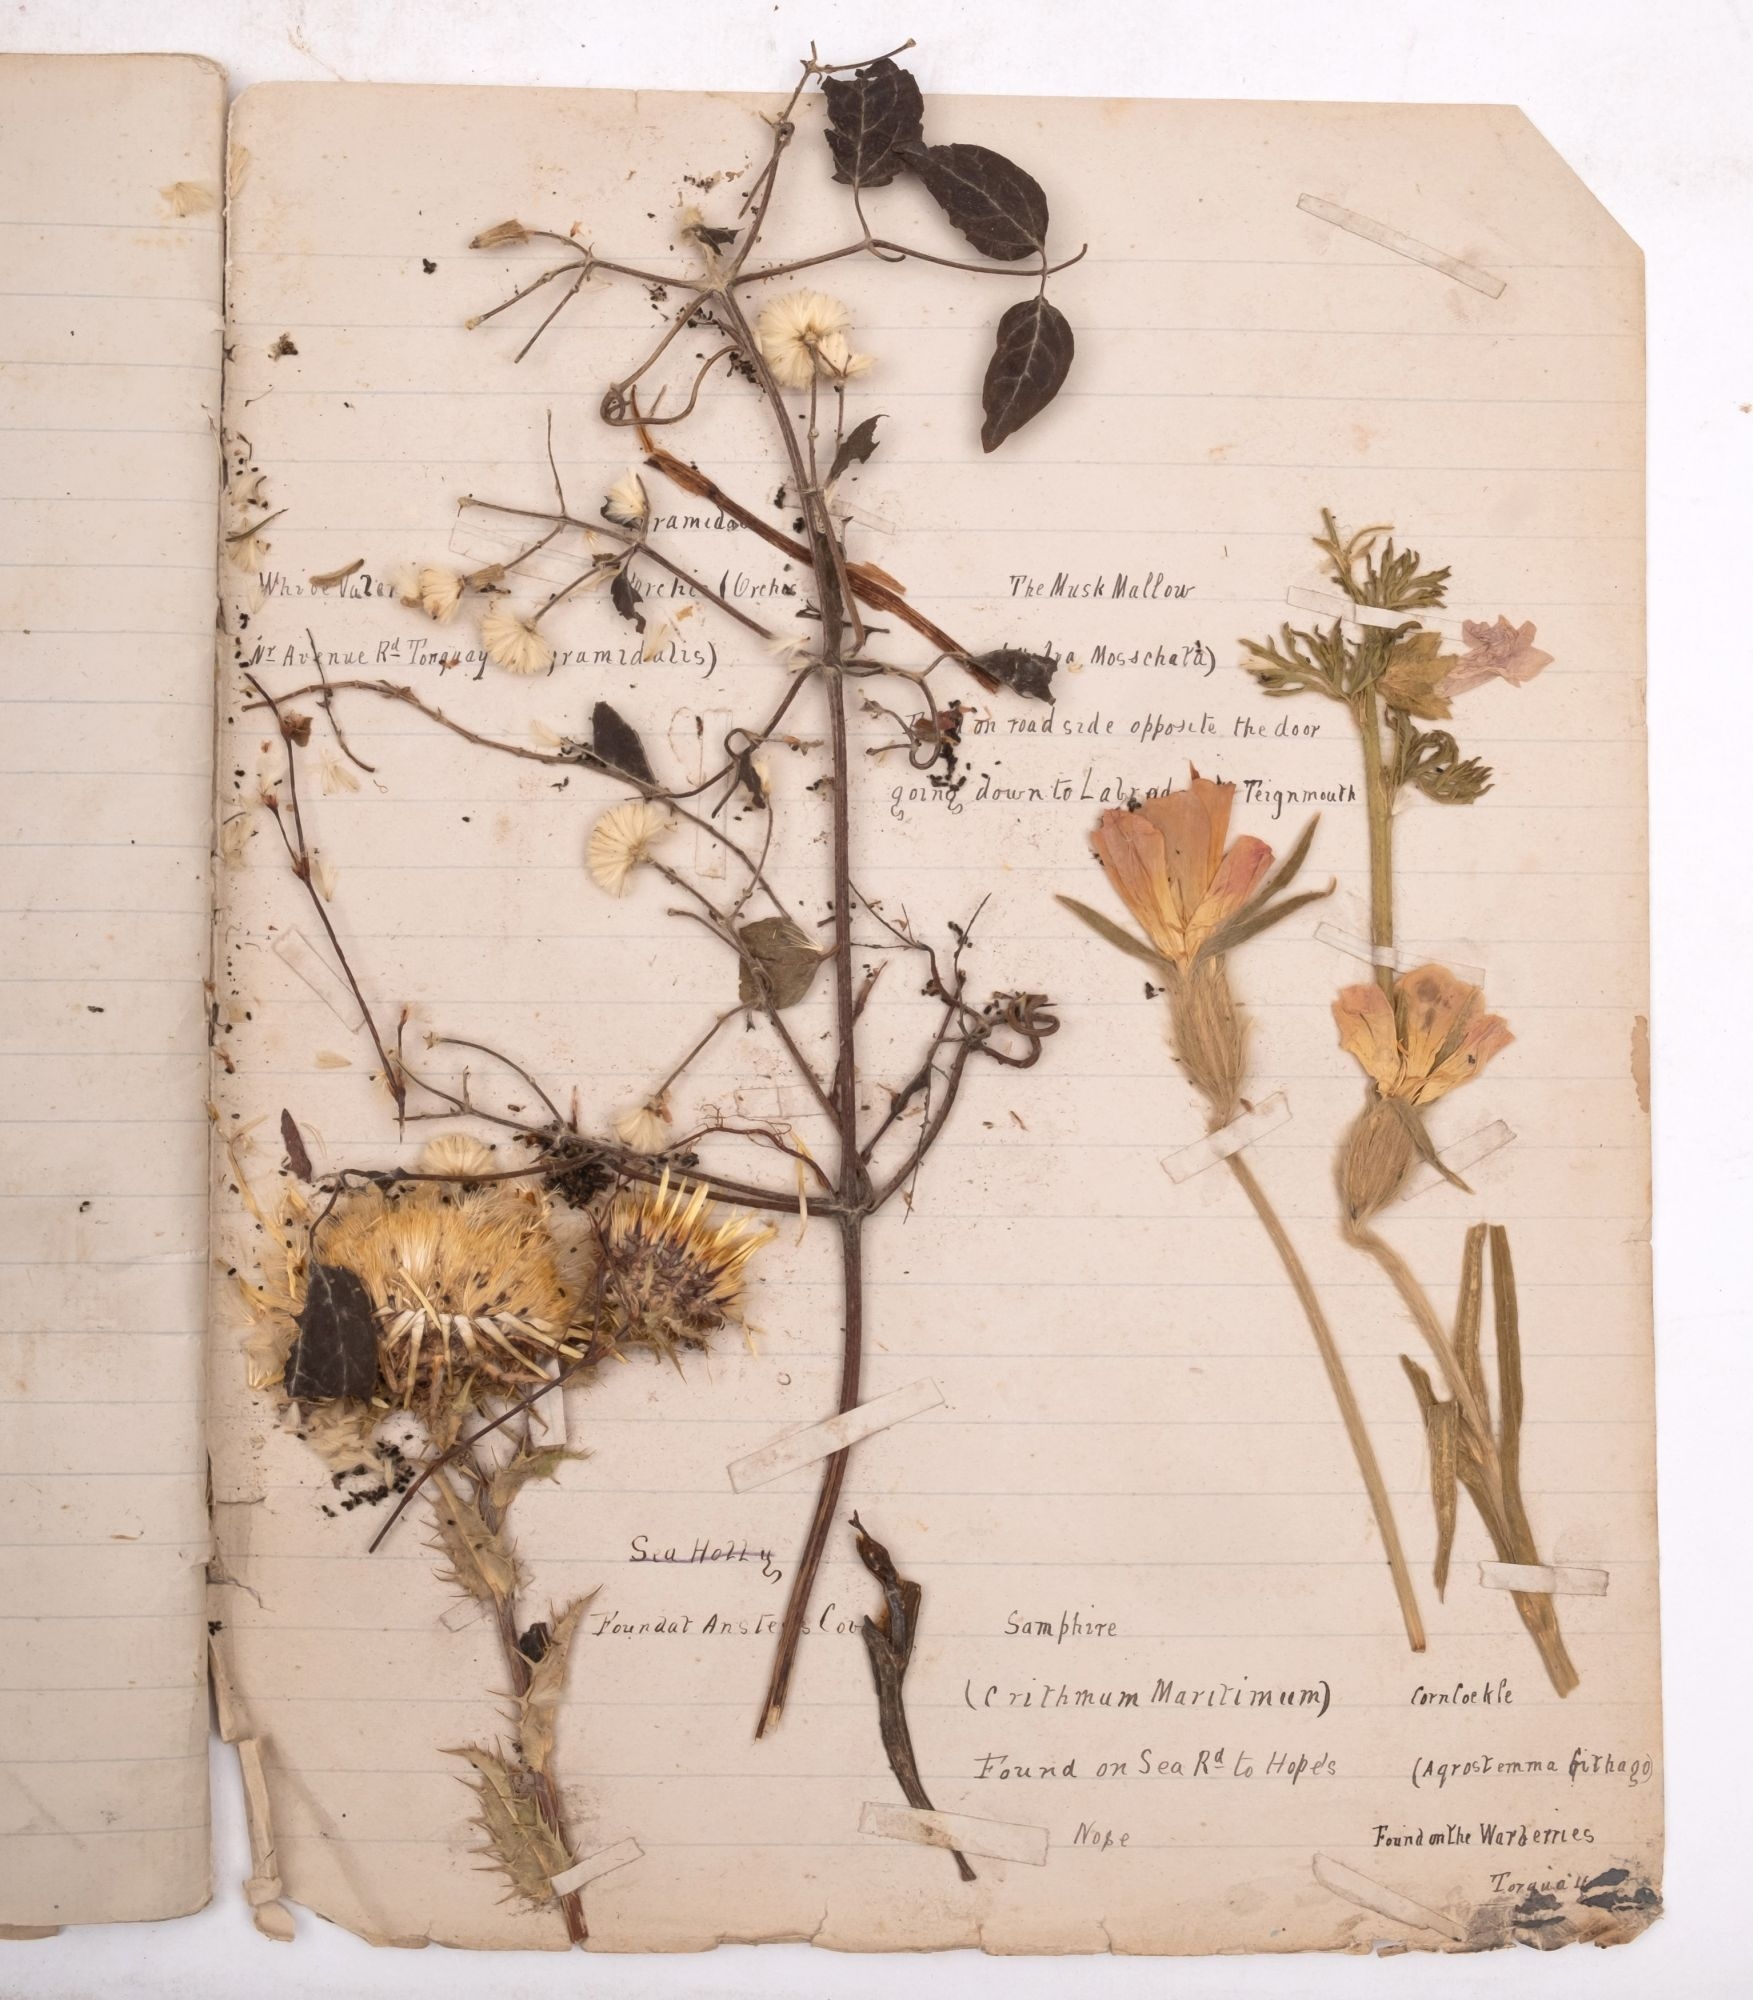 ramida
White Valer
Orchis (Orchis
Nr Avenue Rd Torquay
yramidalis)
The Musk Mallow
Mosschata)
on road side opposite the door
going down to Labrad Teignmouth
Sea Holly
Found at Ansteys Cov
Samphire
(Crithmum Maritimum)
Found on Sea Rd to Hope's
Nope
CornCockle
(Agrostemma Githago)
Found on the Warberries
Torquay